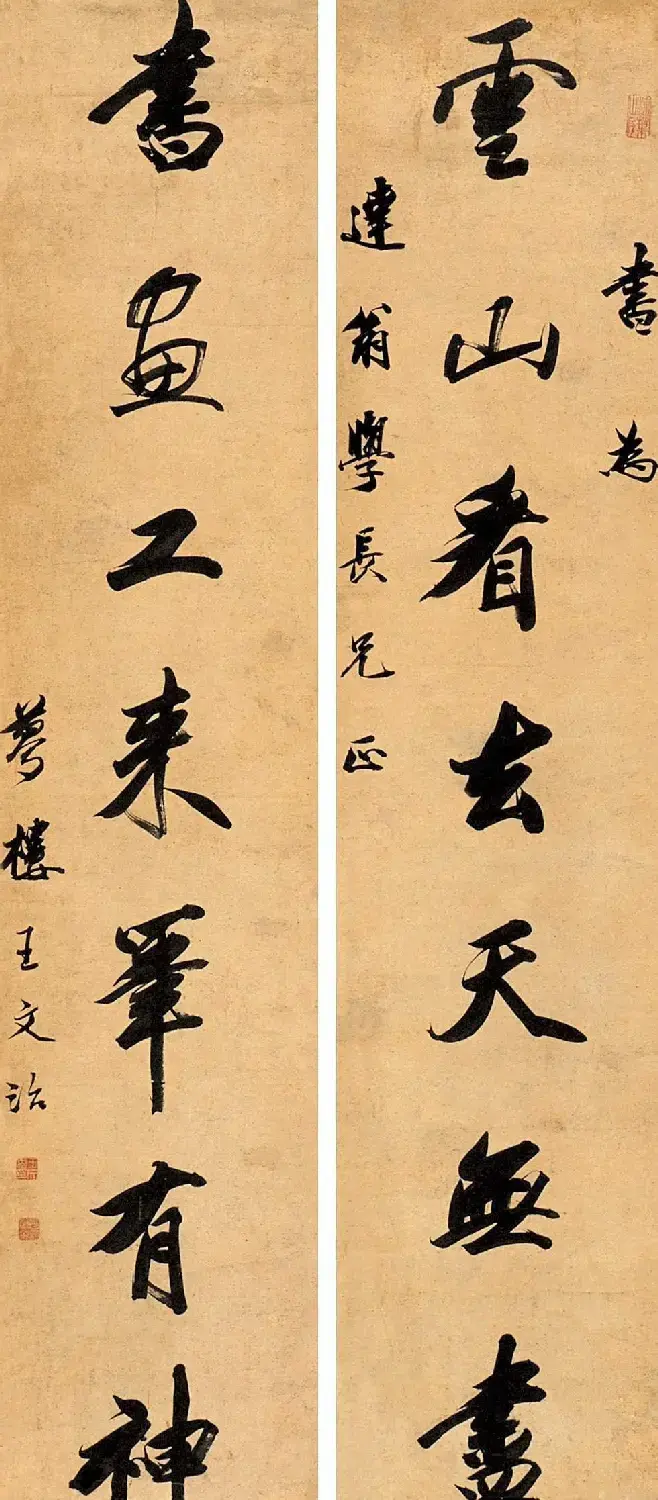 書為
雲山看去天無盡
達翁學長兄正
書画工来筆有神
夢樓王文治